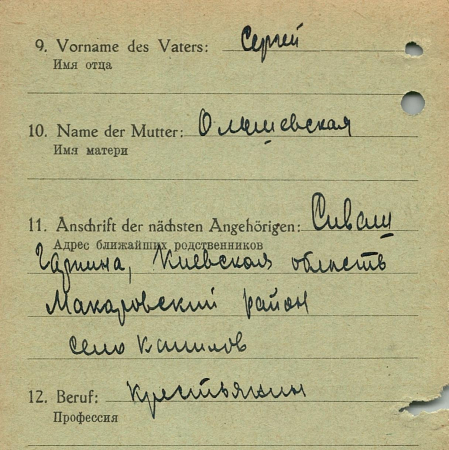 9. Vorname des Vaters: Сергей
Имя отца
10. Name der Mutter: Ольшевская
Имя матери
11. Anschrift der nächsten Angehörigen: Сиваш
Адрес ближайших родственников
Киевская область
Макаровский район
село Капилов
12. Beruf: Крестьянин
Профессия